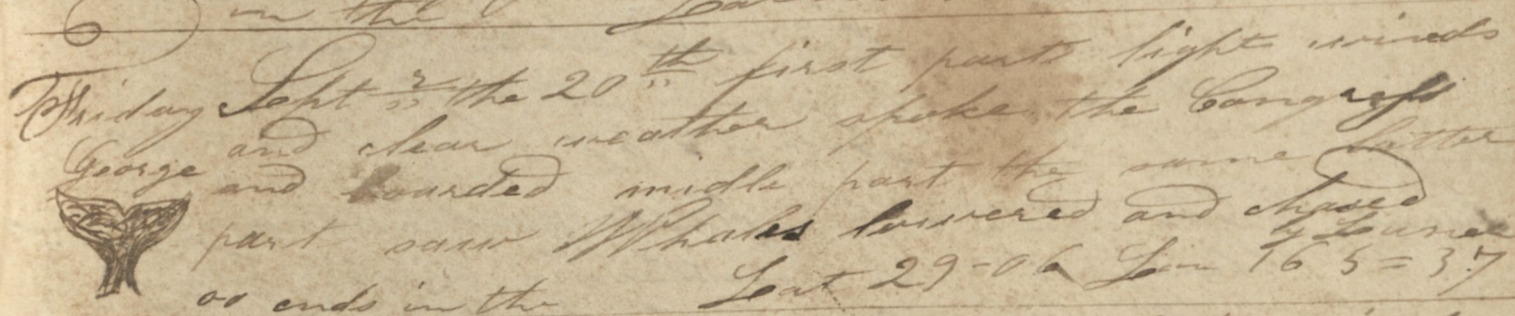 in the
Friday Sept the 20th first part light winds
and clear weather spoke the Congress
George
and boarded midle part the same latter
part saw Whales lowered and chased
by Lunar
oo ends in the Lat 29-06 Lon 165=37